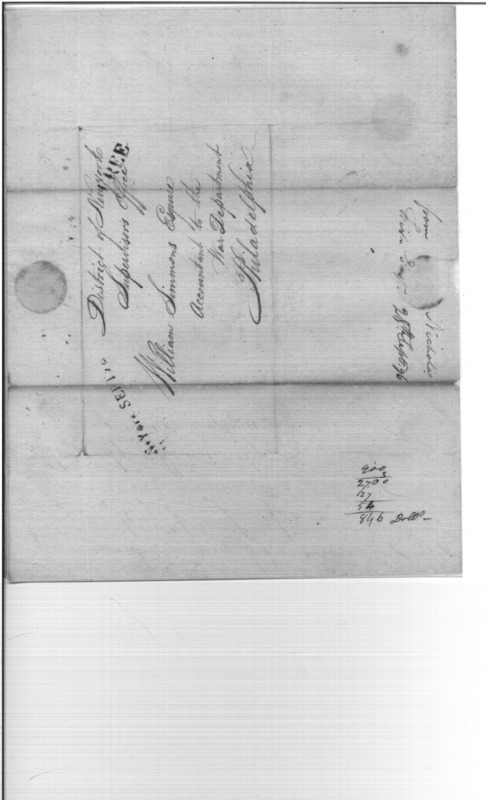 District of Newyork
Supervisors Office
FREE
William Simmons Esquire
Accountant to the
War Department
Philadelphia
SEP
from
Nicholas
28
2700
127
54
846 Dolls